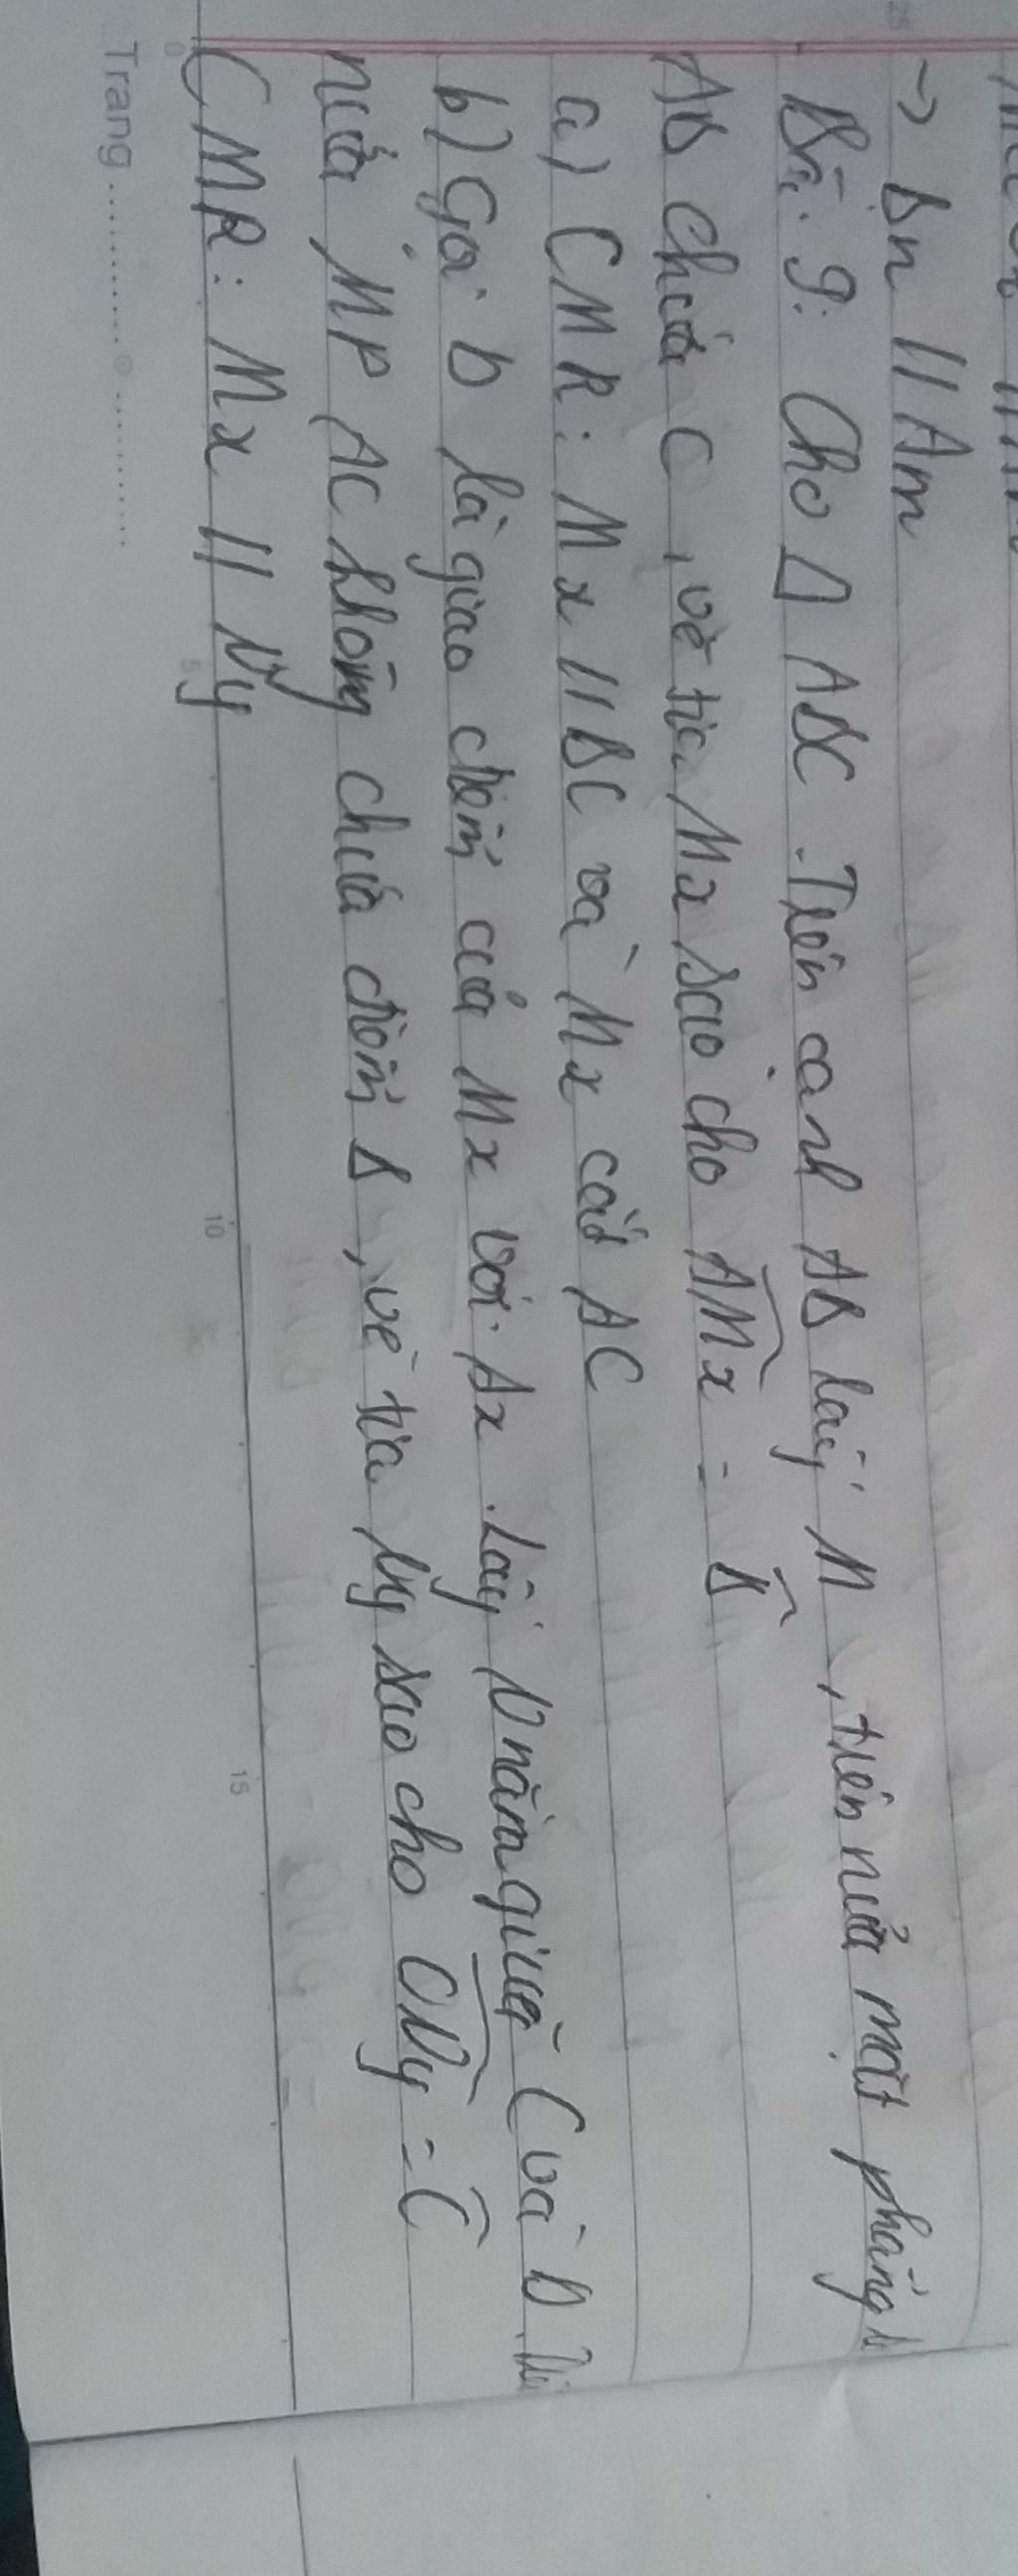 → Bn // Am
Bài 9: Cho Δ ABC. Trên cạnh AB lấy M, trên nửa mặt phẳng
AB chứa C, vẽ tia Mx sao cho AMx = B
a) CMR: Mx // BC và Mx cắt AC
b) Gọi D là giao điểm của Mx với Ax. Lấy N nằm giữa C và D.
nửa MP AC không chứa điểm B, vẽ tia Ny sao cho CNy = C
CMR: Mx // Ny
Trang
5
10
15
25